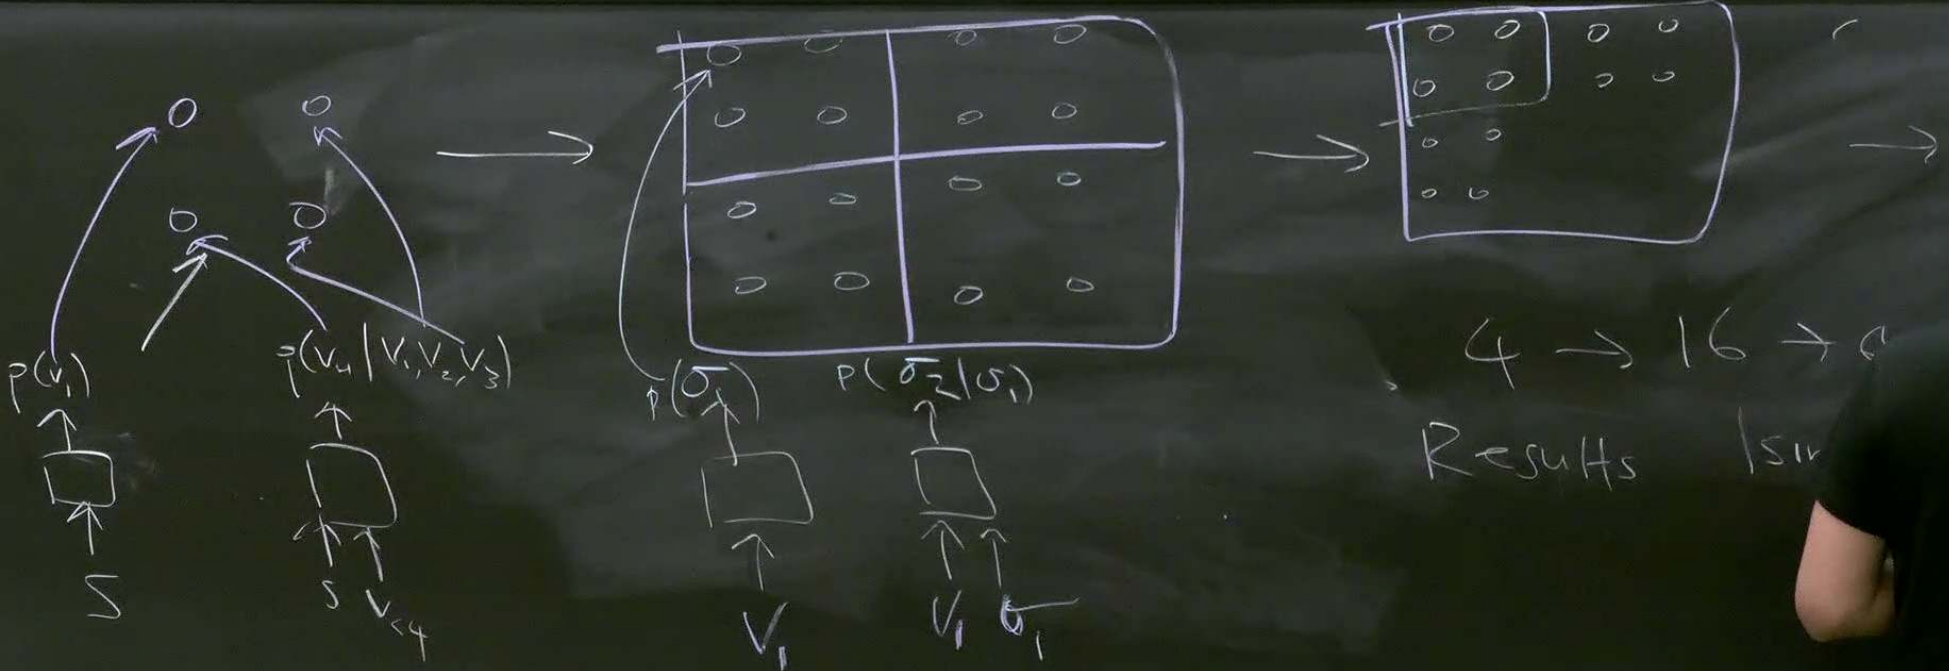 p(v₁)
p(v₄|v₁,v₂,v₃)
S
S v<4
p(σ₁)
p(σ₂|σ₁)
V₁
V₁ σ₁
4 → 16 →
Results